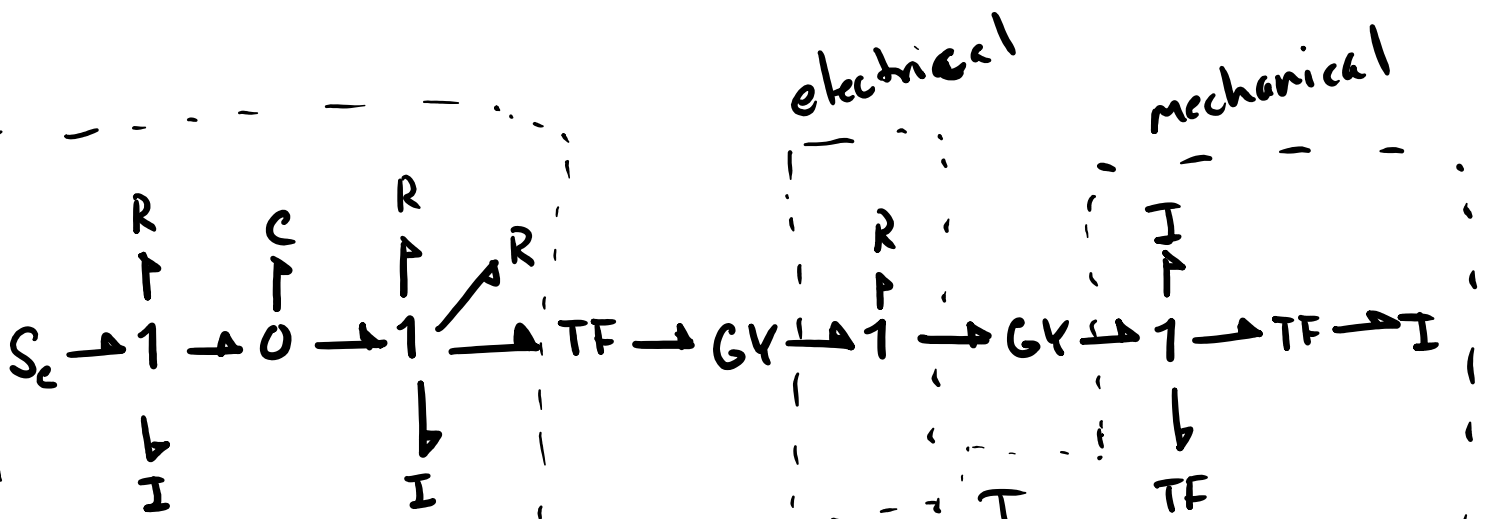 electrical
mechanical
R C R R R I
Se 1 0 1 TF GY 1 GY 1 TF I
I I T TF